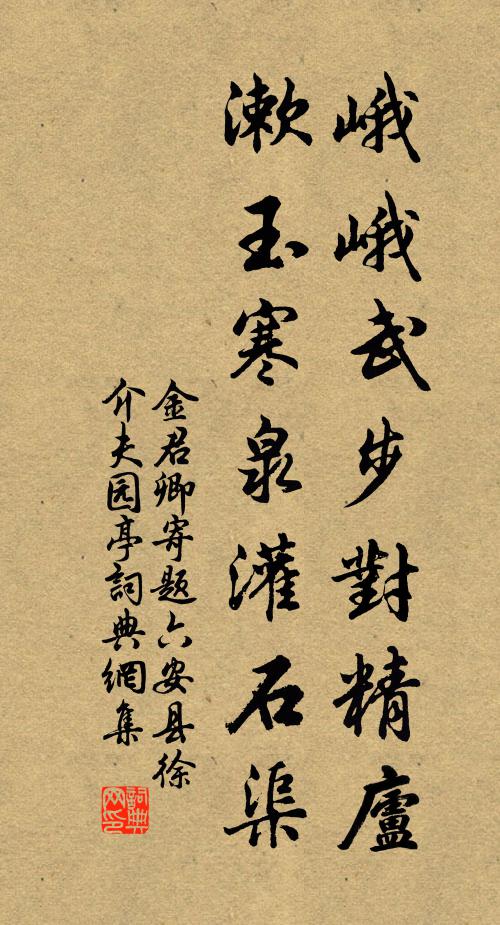 峨峨武步對精廬
漱玉寒泉灌石渠
金君卿寄题六安县徐
介夫园亭詞典網集
詞典网印